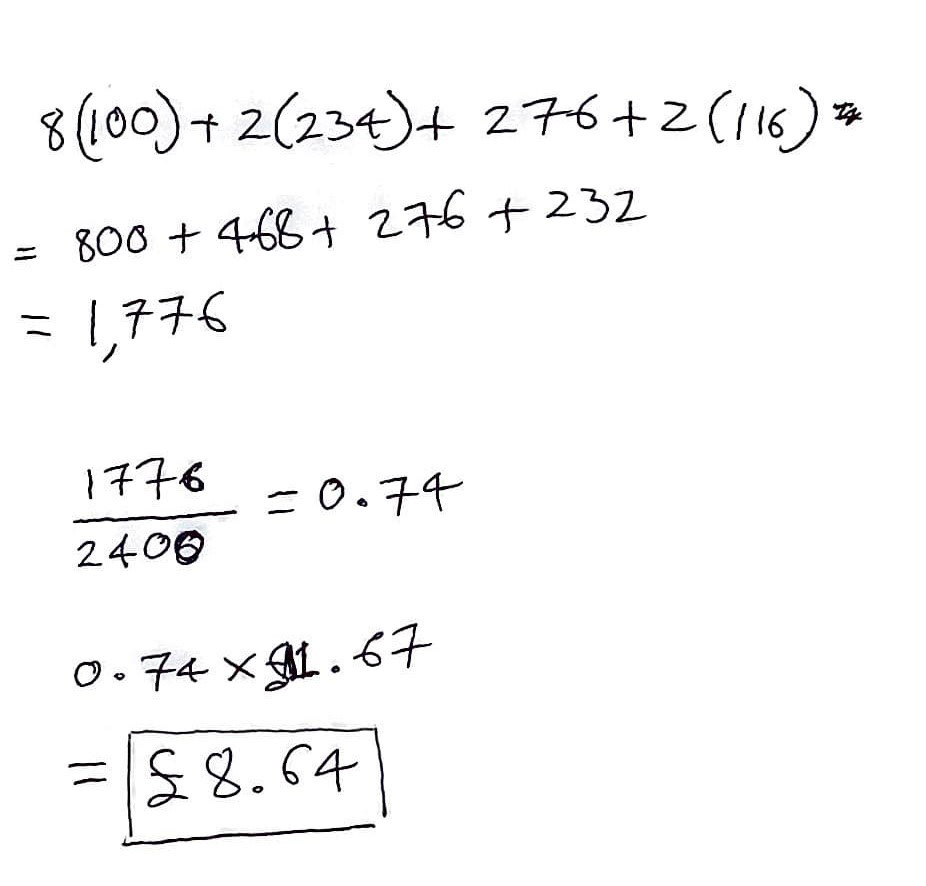 8(100) + 2(234) + 276 + 2(116)
= 800 + 468 + 276 + 232
= 1,776
1776
2400
= 0.74
0.74 × 11.67
= £8.64